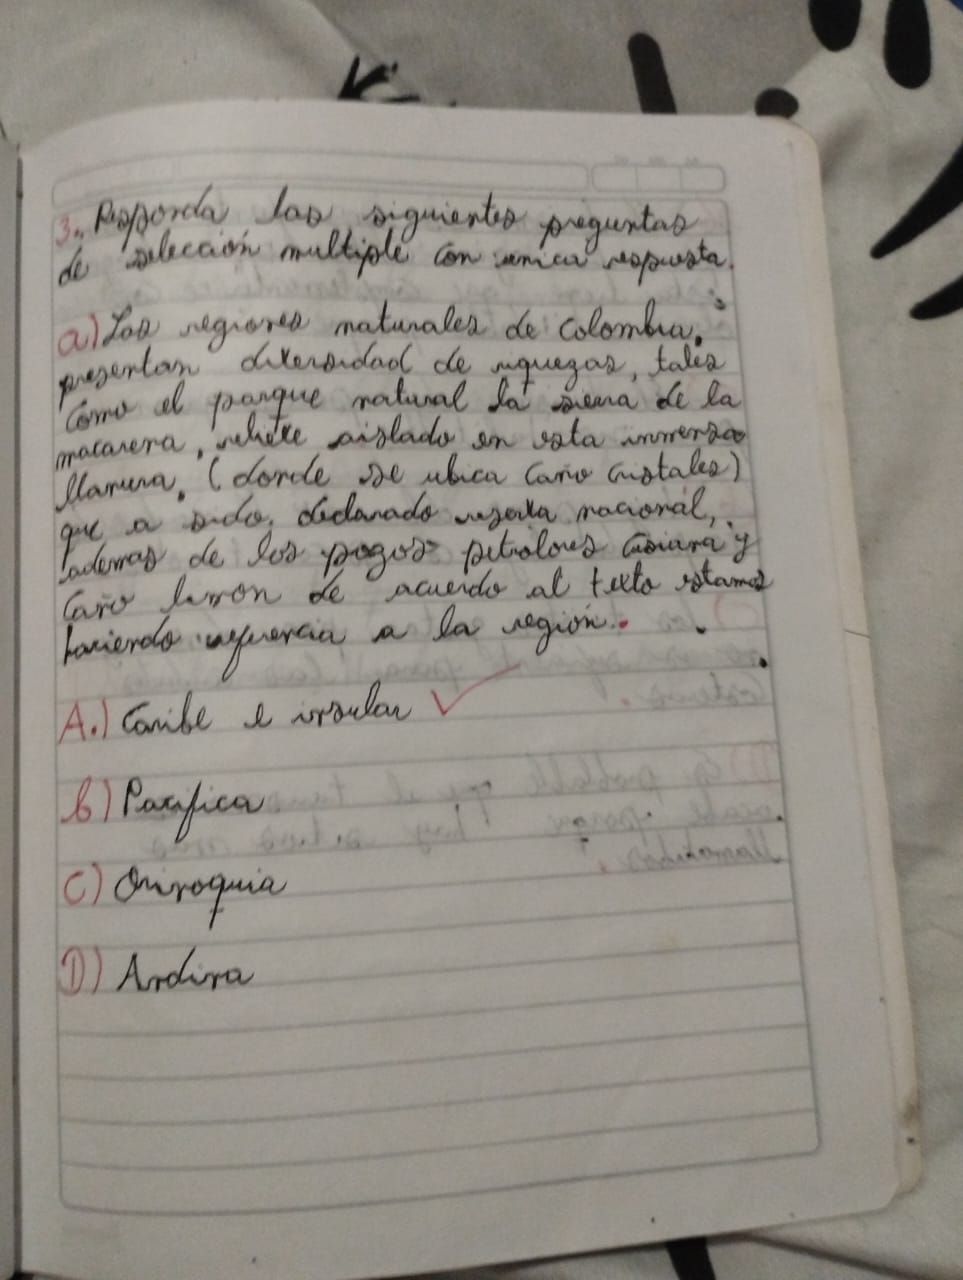 3. Responda las siguientes preguntas
de selección multiple con unica respuesta.
a) Las regiones naturales de Colombia,
presentan diversidad de riquezas, tales
como el parque natural la sierra de la
macarena, relieve aislado en esta inmensa
llanura. (donde se ubica Caño Cristales)
que a sido, declarado reserva nacional,
ademas de los pozos petroleros Cusiana y
Caño limon de acuerdo al texto estamos
haciendo referencia a la región.
A.) Caribe e insular ✓
b) Pacifica
C) Oriroquia
D) Andina